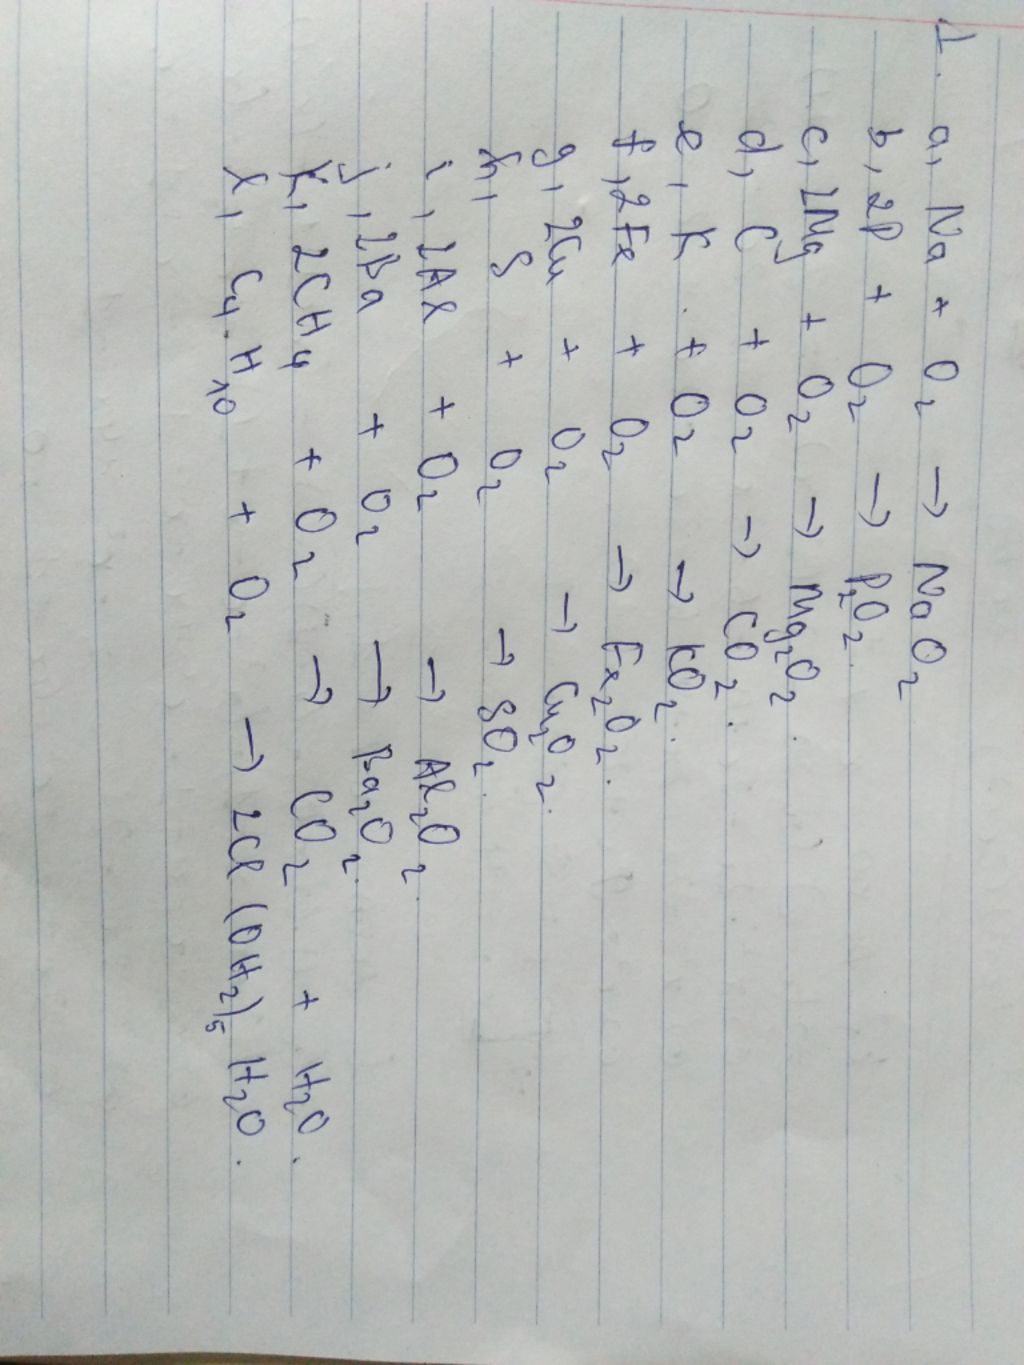 1. a, Na + O2 → NaO2
b, 2P + O2 → P2O2.
c, 2Mg + O2 → Mg2O2.
d, C + O2 → CO2.
e, K + O2 → KO2.
f, 2Fe + O2 → Fe2O2.
g, 2Cu + O2 → Cu2O2.
h, S + O2 → SO2.
i, 2Al + O2 → Al2O2.
j, 2Ba + O2 → Ba2O2.
k, 2CH4 + O2 → CO2 + H2O.
l, C4H10 + O2 → 2Cl(OH2)5 H2O.